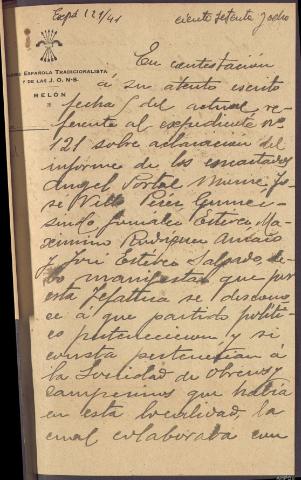 Expd 121/41
ciento setenta y ocho
Española Tradicionalista
y de las J.O.N-S.
MELÓN
En contestación
á su atento escrito
fecha 5 del actual, re-
ferente al expediente nº
121 sobre aclaración del
informe de los encartados
Angel Portal
sé Perez Gumer-
sindo Gonzalez Estevez Ma-
ximino Rodriguez
y José Estevez Salgado, de-
bo manifestar que por
esta Jefatura se descono-
ce á que partido políti-
co pertenecieron, y si
consta pertenecían á
la Sociedad de Obreros y
Campesinos que había
en esta localidad, la
cual colaboraba con